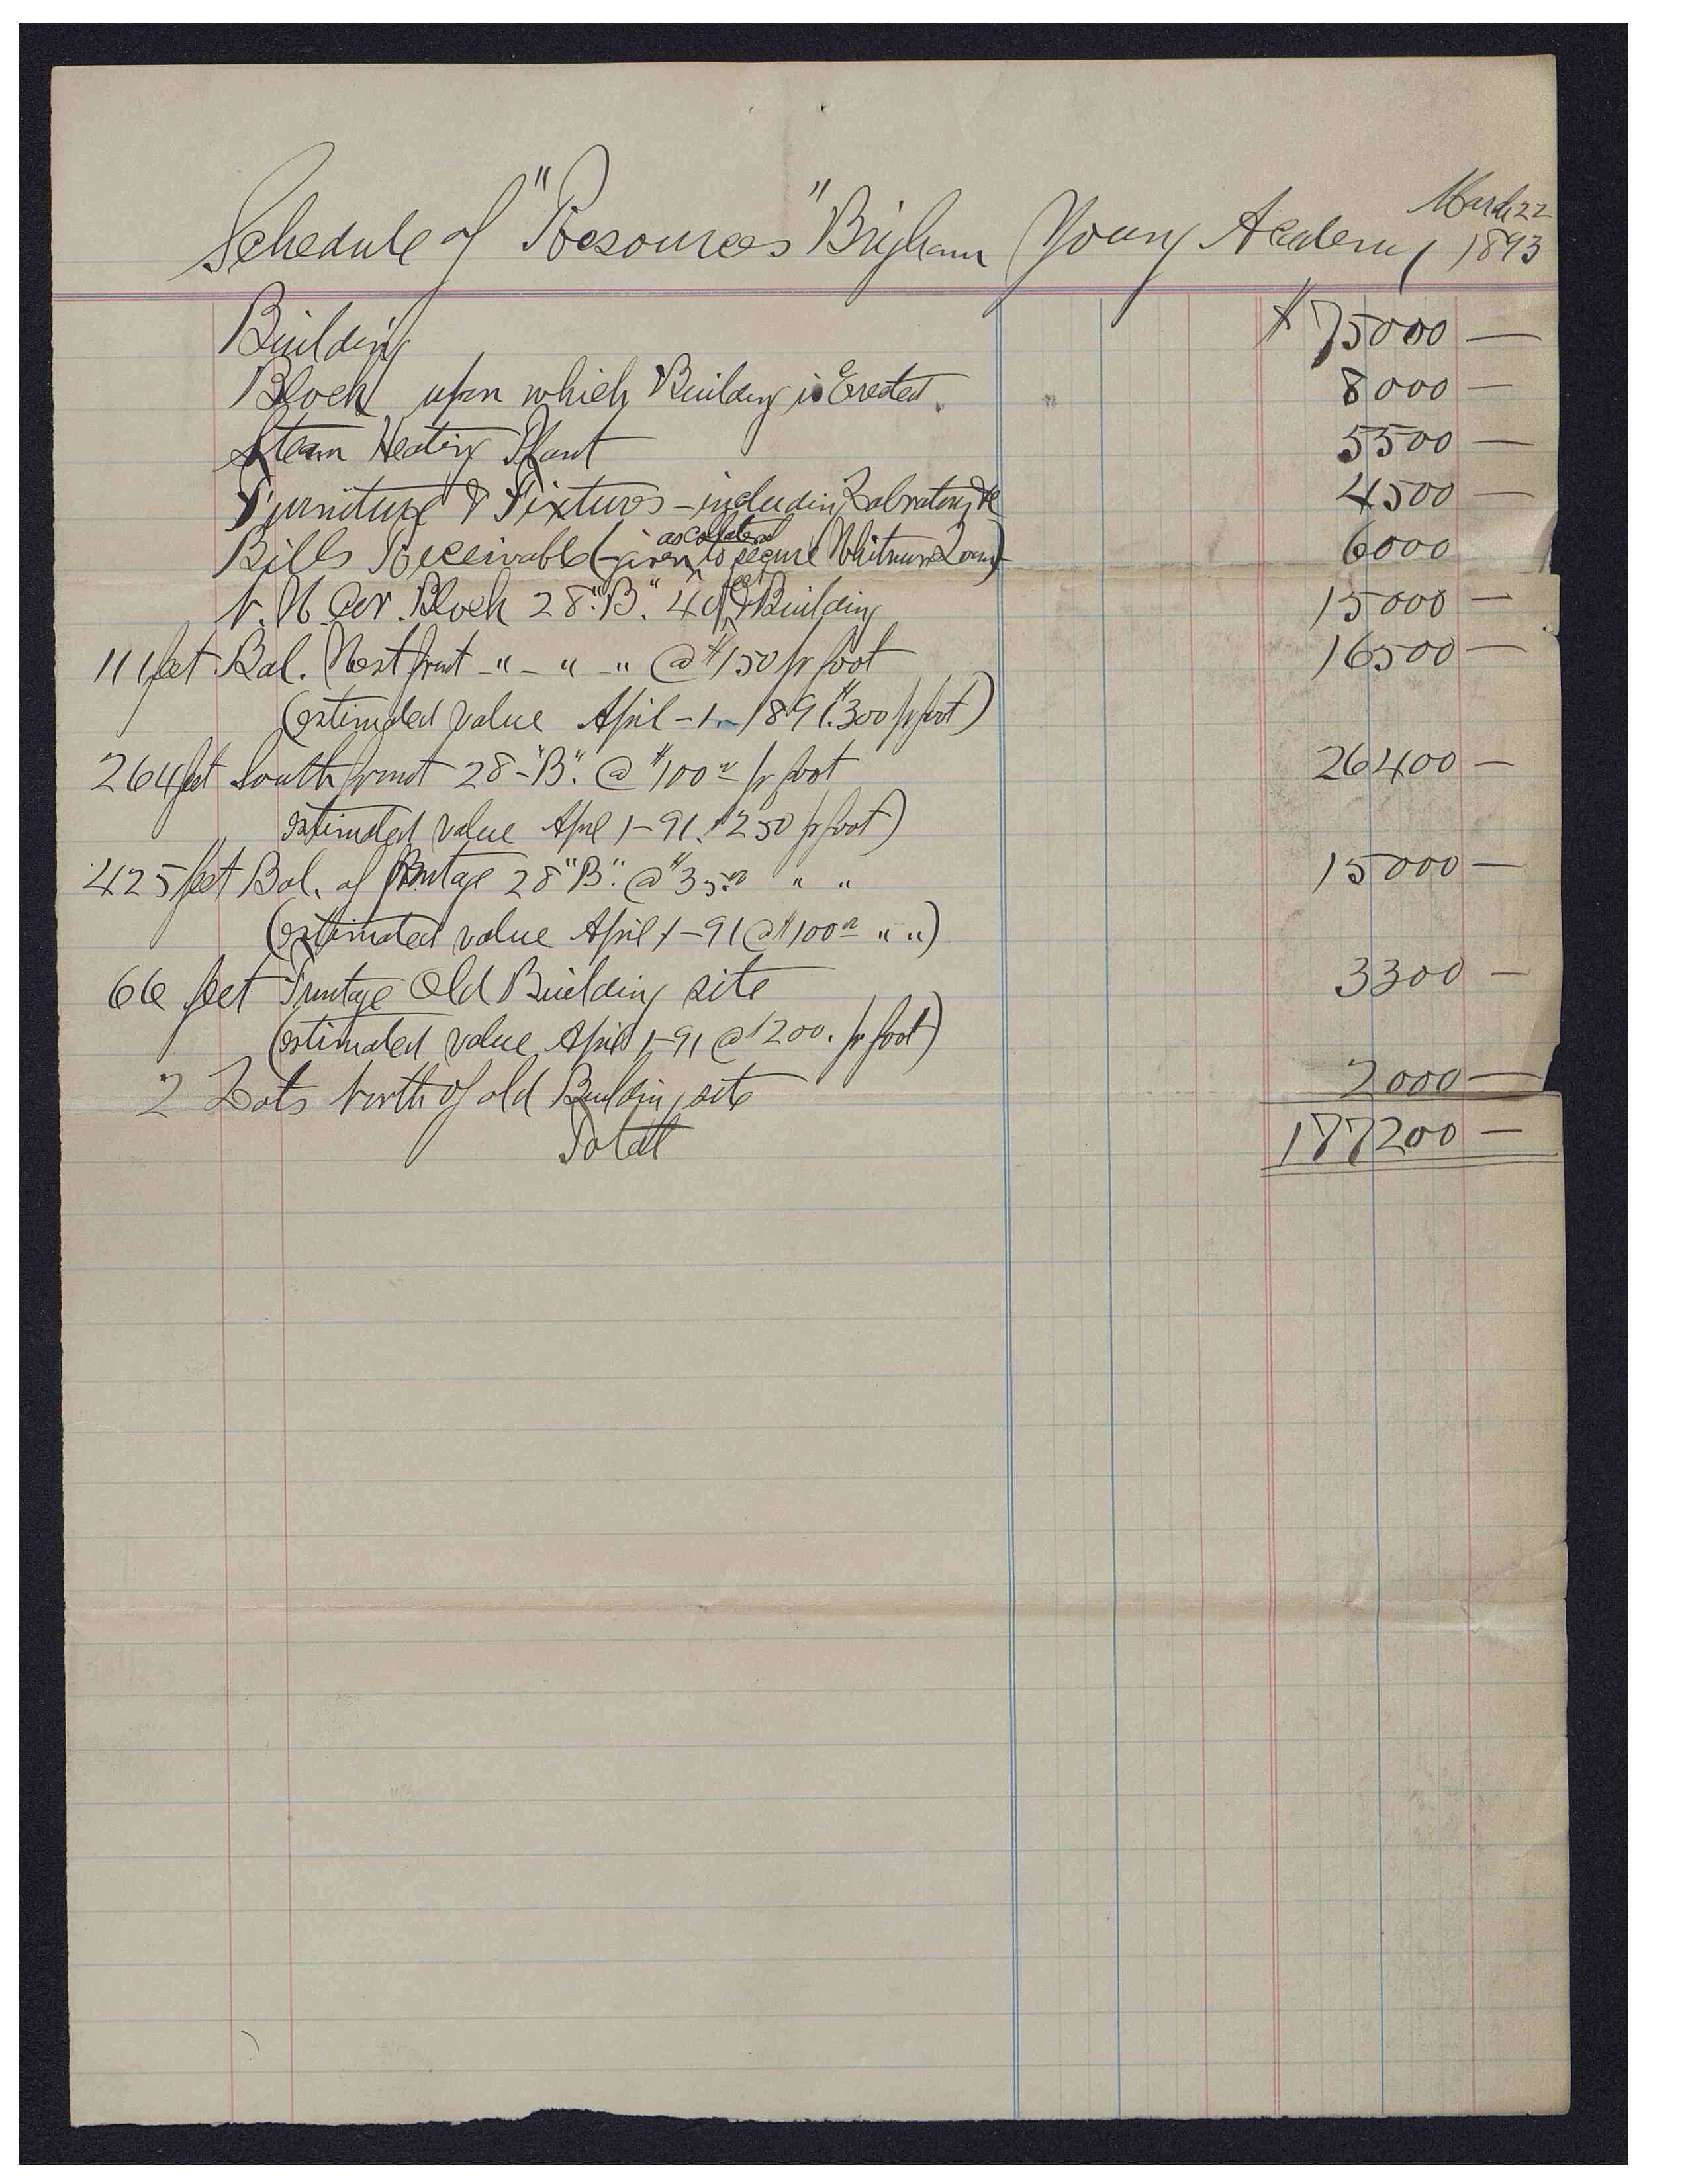 March 22
Schedule of "Resources" Brigham Young Academy 1893
Building $75000 —
Block upon which Building is Erected. 8000 —
Steam Heating Plant 5500 —
Furniture & Fixtures — including Labratory &c 4500 —
as collateral
Bills Receivable (given to secure Whitmore Loan) 6000
feet
N. W. Cor. Block 28 "B." 40 & Building 15000 —
111 feet Bal. West front " — " — " @ $150 pr foot 16500 —
(estimated value April — 1 — 1891. $300 pr foot)
264 feet South front 28 — "B". @ $100 00 pr foot 26400 —
estimated value Aprl 1 — 91. $250 pr foot)
425 feet Bal. of frontage 28 "B". @ $35.00 " " 15000 —
(estimated value April 1 — 91 @ $100 00 " ")
66 feet Frontage Old Building site 3300 —
(estimated value April 1 — 91 @ $200. pr foot)
2 Lots North of old Building site 2000 —
Total 177200 —